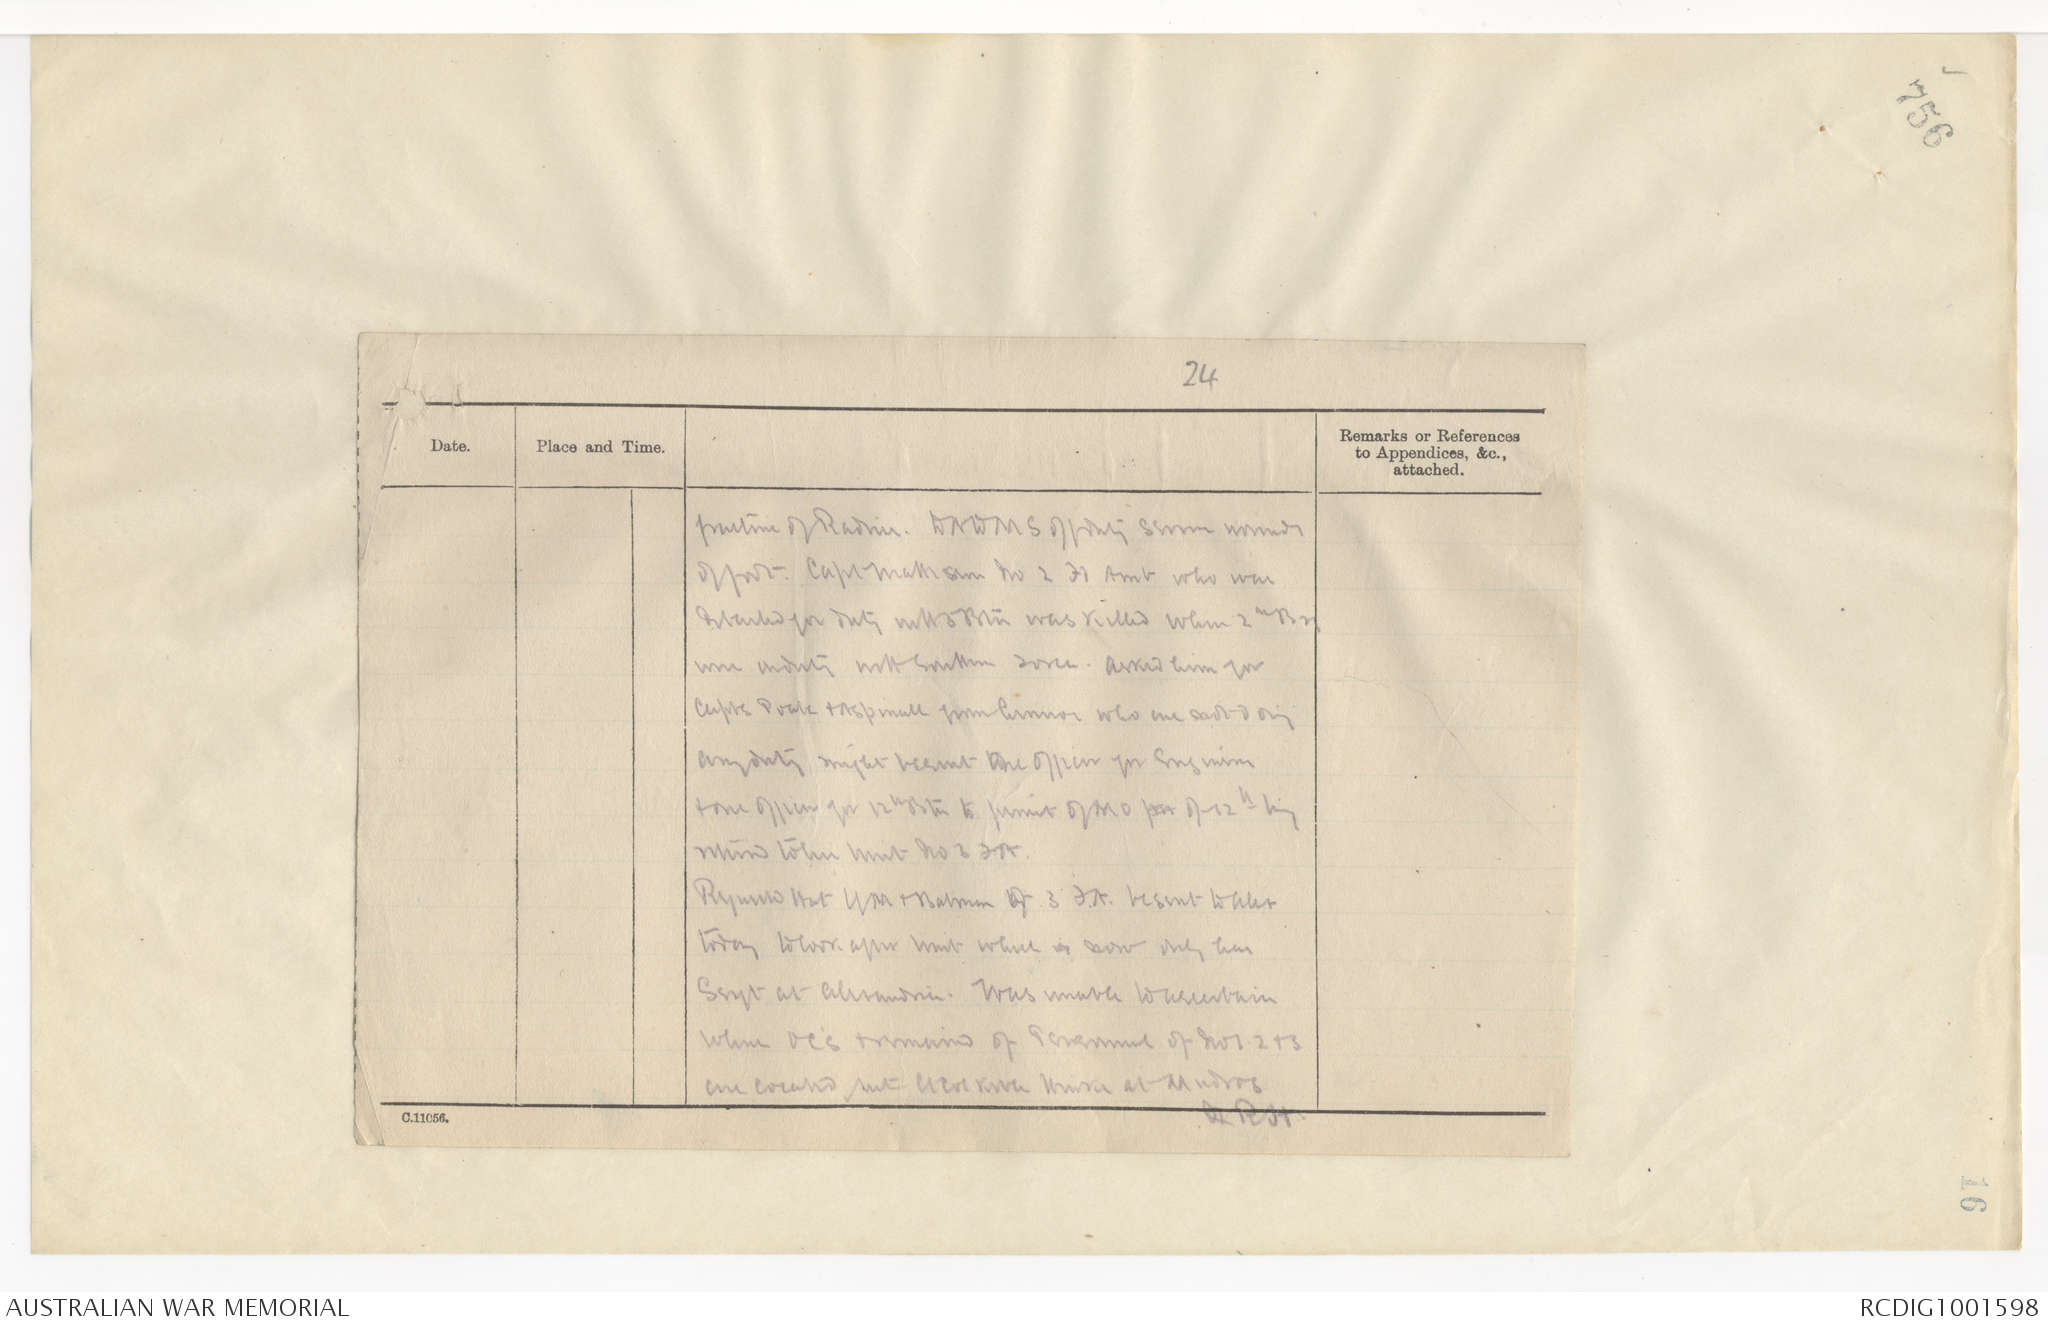 756
24
Date.
Place and Time.
Remarks or References
to Appendices, &c.,
attached.
fracture of Radius. DADMS off duty Severe wounds
of foot. Capt Mathison No 2 Fd Amb who was
detached for duty with 5 Btn was killed when 2nd Bg
were on duty with Southern Force. Asked him for
Capts Poate & Aspinall from who are not doing
any duty might be sent One Officer for Engineers
& one Officer for 12th Btn to permit of MO of 12th being
returned to his Unit No 3 F.A.
Requested that QM & Batman of 3 F.A. be sent to Alex
today to look after Unit which is now only has
Sergt at Alexandria. Was unable to ascertain
where OC's & remainder of Personnel of Nos 2 & 3
are located but Lt Col think at Mudros
C.11056.
16
AUSTRALIAN WAR MEMORIAL
RCDIG1001598